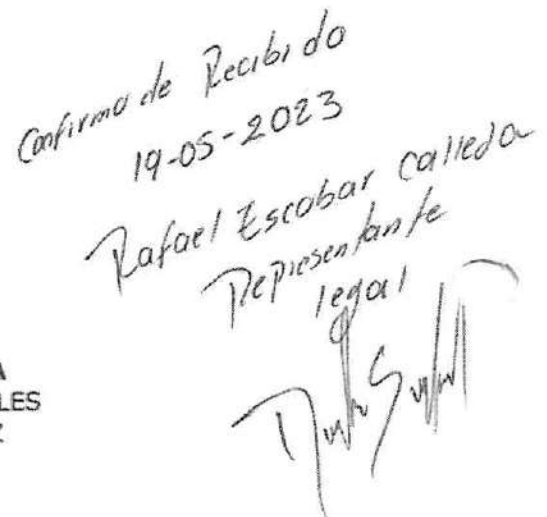 Confirmo de Recibido
19-05-2023
Rafael Escobar Calleda
Representante
legal
A
LES
Z